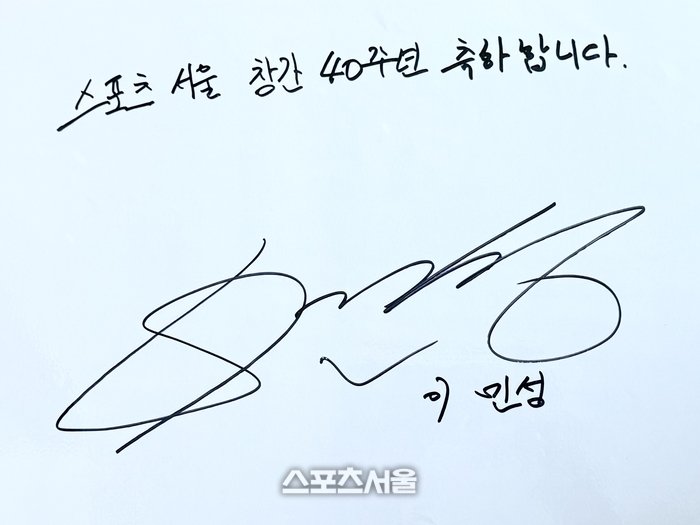 스포츠 서울 창간 40주년 축하합니다.
이 민성
스포츠서울